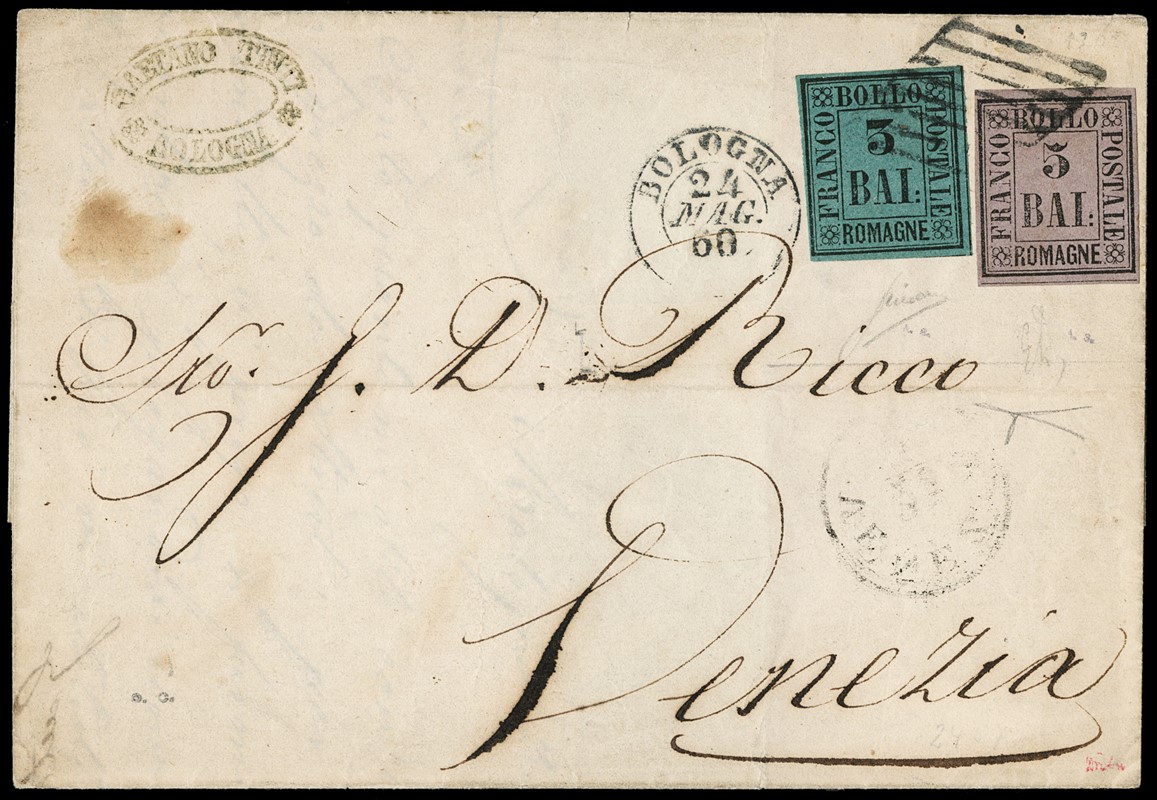 GAETANO TINTI
BOLOGNA
BOLOGNA
24
MAG.
60
BOLLO
FRANCO
3
BAI:
POSTALE
ROMAGNE
BOLLO
FRANCO
5
BAI:
POSTALE
ROMAGNE
J. D. Ricco
Venezia